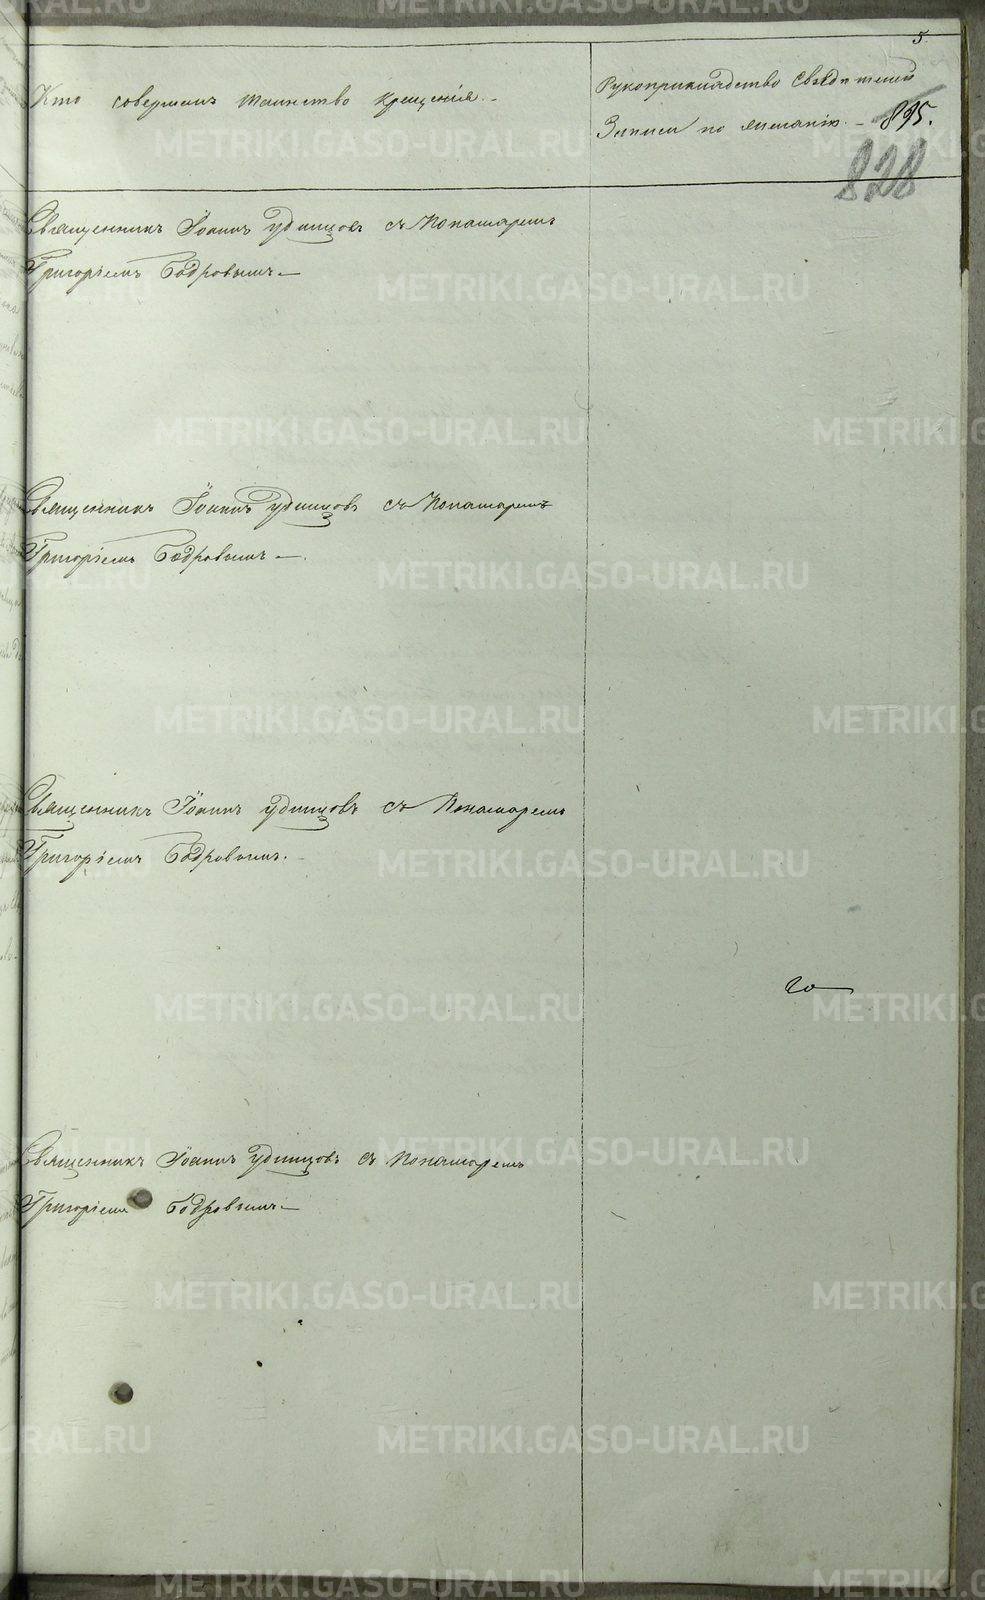 5.
Кто совершалъ таинство крещенія. –
Рукоприкладство свѣдѣтелей
Записи по желанію. – 895.
828
Священникъ Іоаннъ Удинцовъ съ Пономаремъ
Григоріемъ Бодровымъ. –
Священникъ Іоаннъ Удинцовъ съ Пономаремъ
Григоріемъ Бодровымъ. –
Священникъ Іоаннъ Удинцовъ съ Пономаремъ
Григоріемъ Бодровымъ.
Священникъ Іоаннъ Удинцовъ съ Пономаремъ
Григоріемъ Бодровымъ –
METRIKI.GASO-URAL.RU